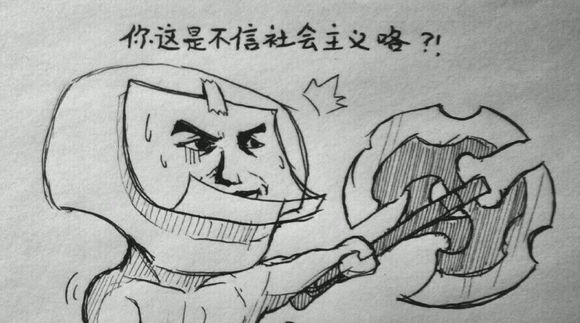 你这是不信社会主义咯?!